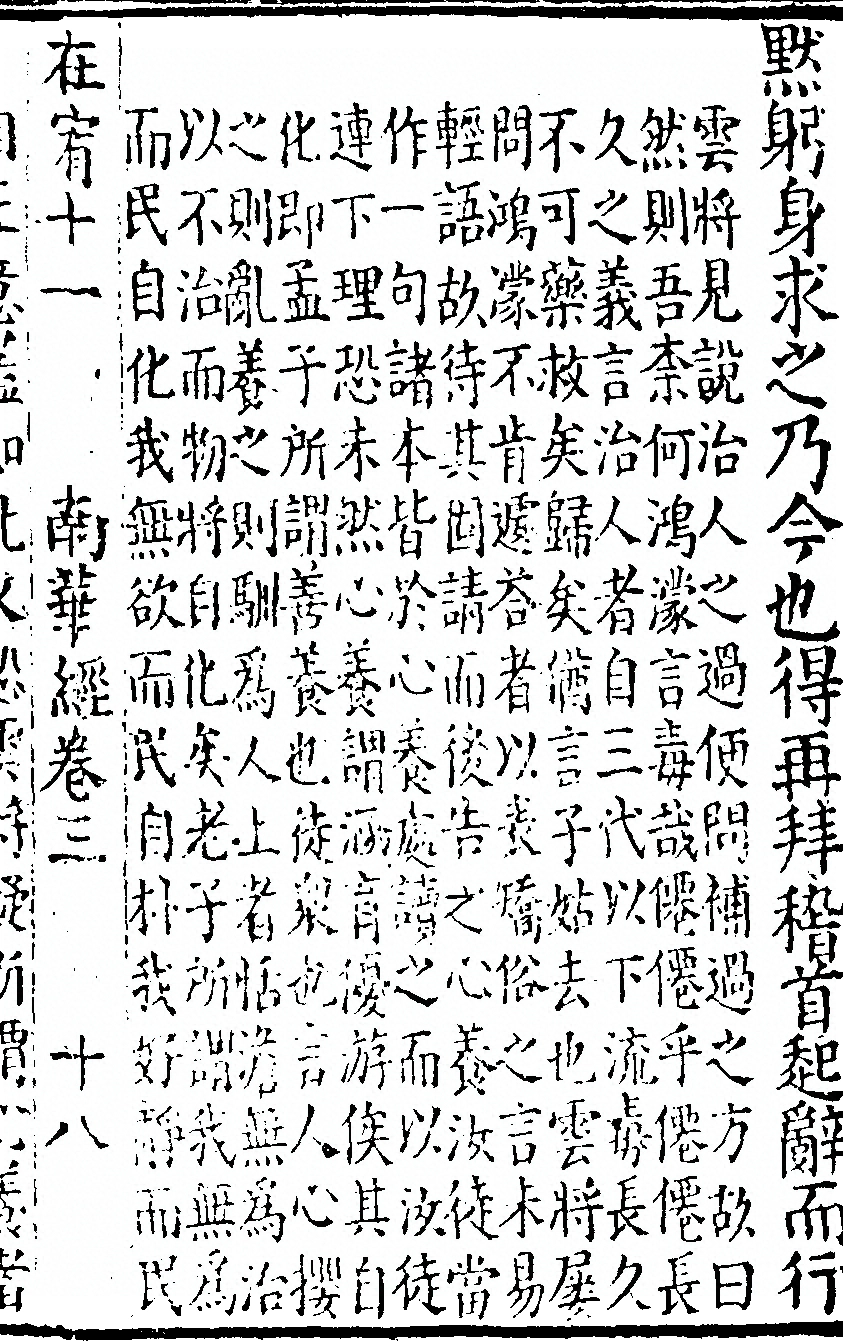 黙躬身求之乃今也得再拜稽首起辭而行
雲將見說治人之過便問補過之方故曰
然則吾柰何鴻濛言毒哉僊僊乎僊僊長
久之義言治人者自三代以下流毒長久
不可藥救矣歸矣猶言子姑去也雲將屡
問鴻濛不肯遽荅者以養矯俗之言未易
輕語故待其固請而後告之心養汝徒當
作一句諸本皆於心養處讀之而以汝徒
連下理恐未然心養謂涵育優游俟其自
化即孟子所謂善養也徒衆也言人心攖
之則亂養之則馴爲人上者恬澹無為治
以不治而物將自化矣老子所謂我無爲
而民自化我無欲而民自朴我好靜而民
在宥十一 南華經卷三 十八